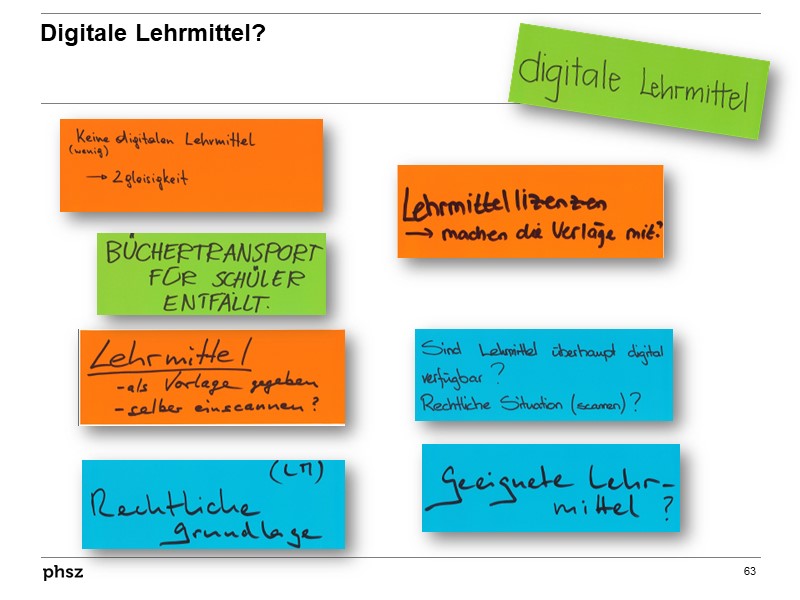 Digitale Lehrmittel?
digitale Lehrmittel
Keine digitalen Lehrmittel
(wenig)
→ 2gleisigkeit
Lehrmittellizenzen
→ machen die Verläge mit?
BÜCHERTRANSPORT
FÜR SCHÜLER
ENTFÄLLT.
Lehrmittel
- als Vorlage gegeben
- selber einscannen?
Sind Lehrmittel überhaupt digital
verfügbar?
Rechtliche Situation (scannen)?
(LM)
Rechtliche
grundlage
Geeignete Lehr-
mittel ?
phsz
63